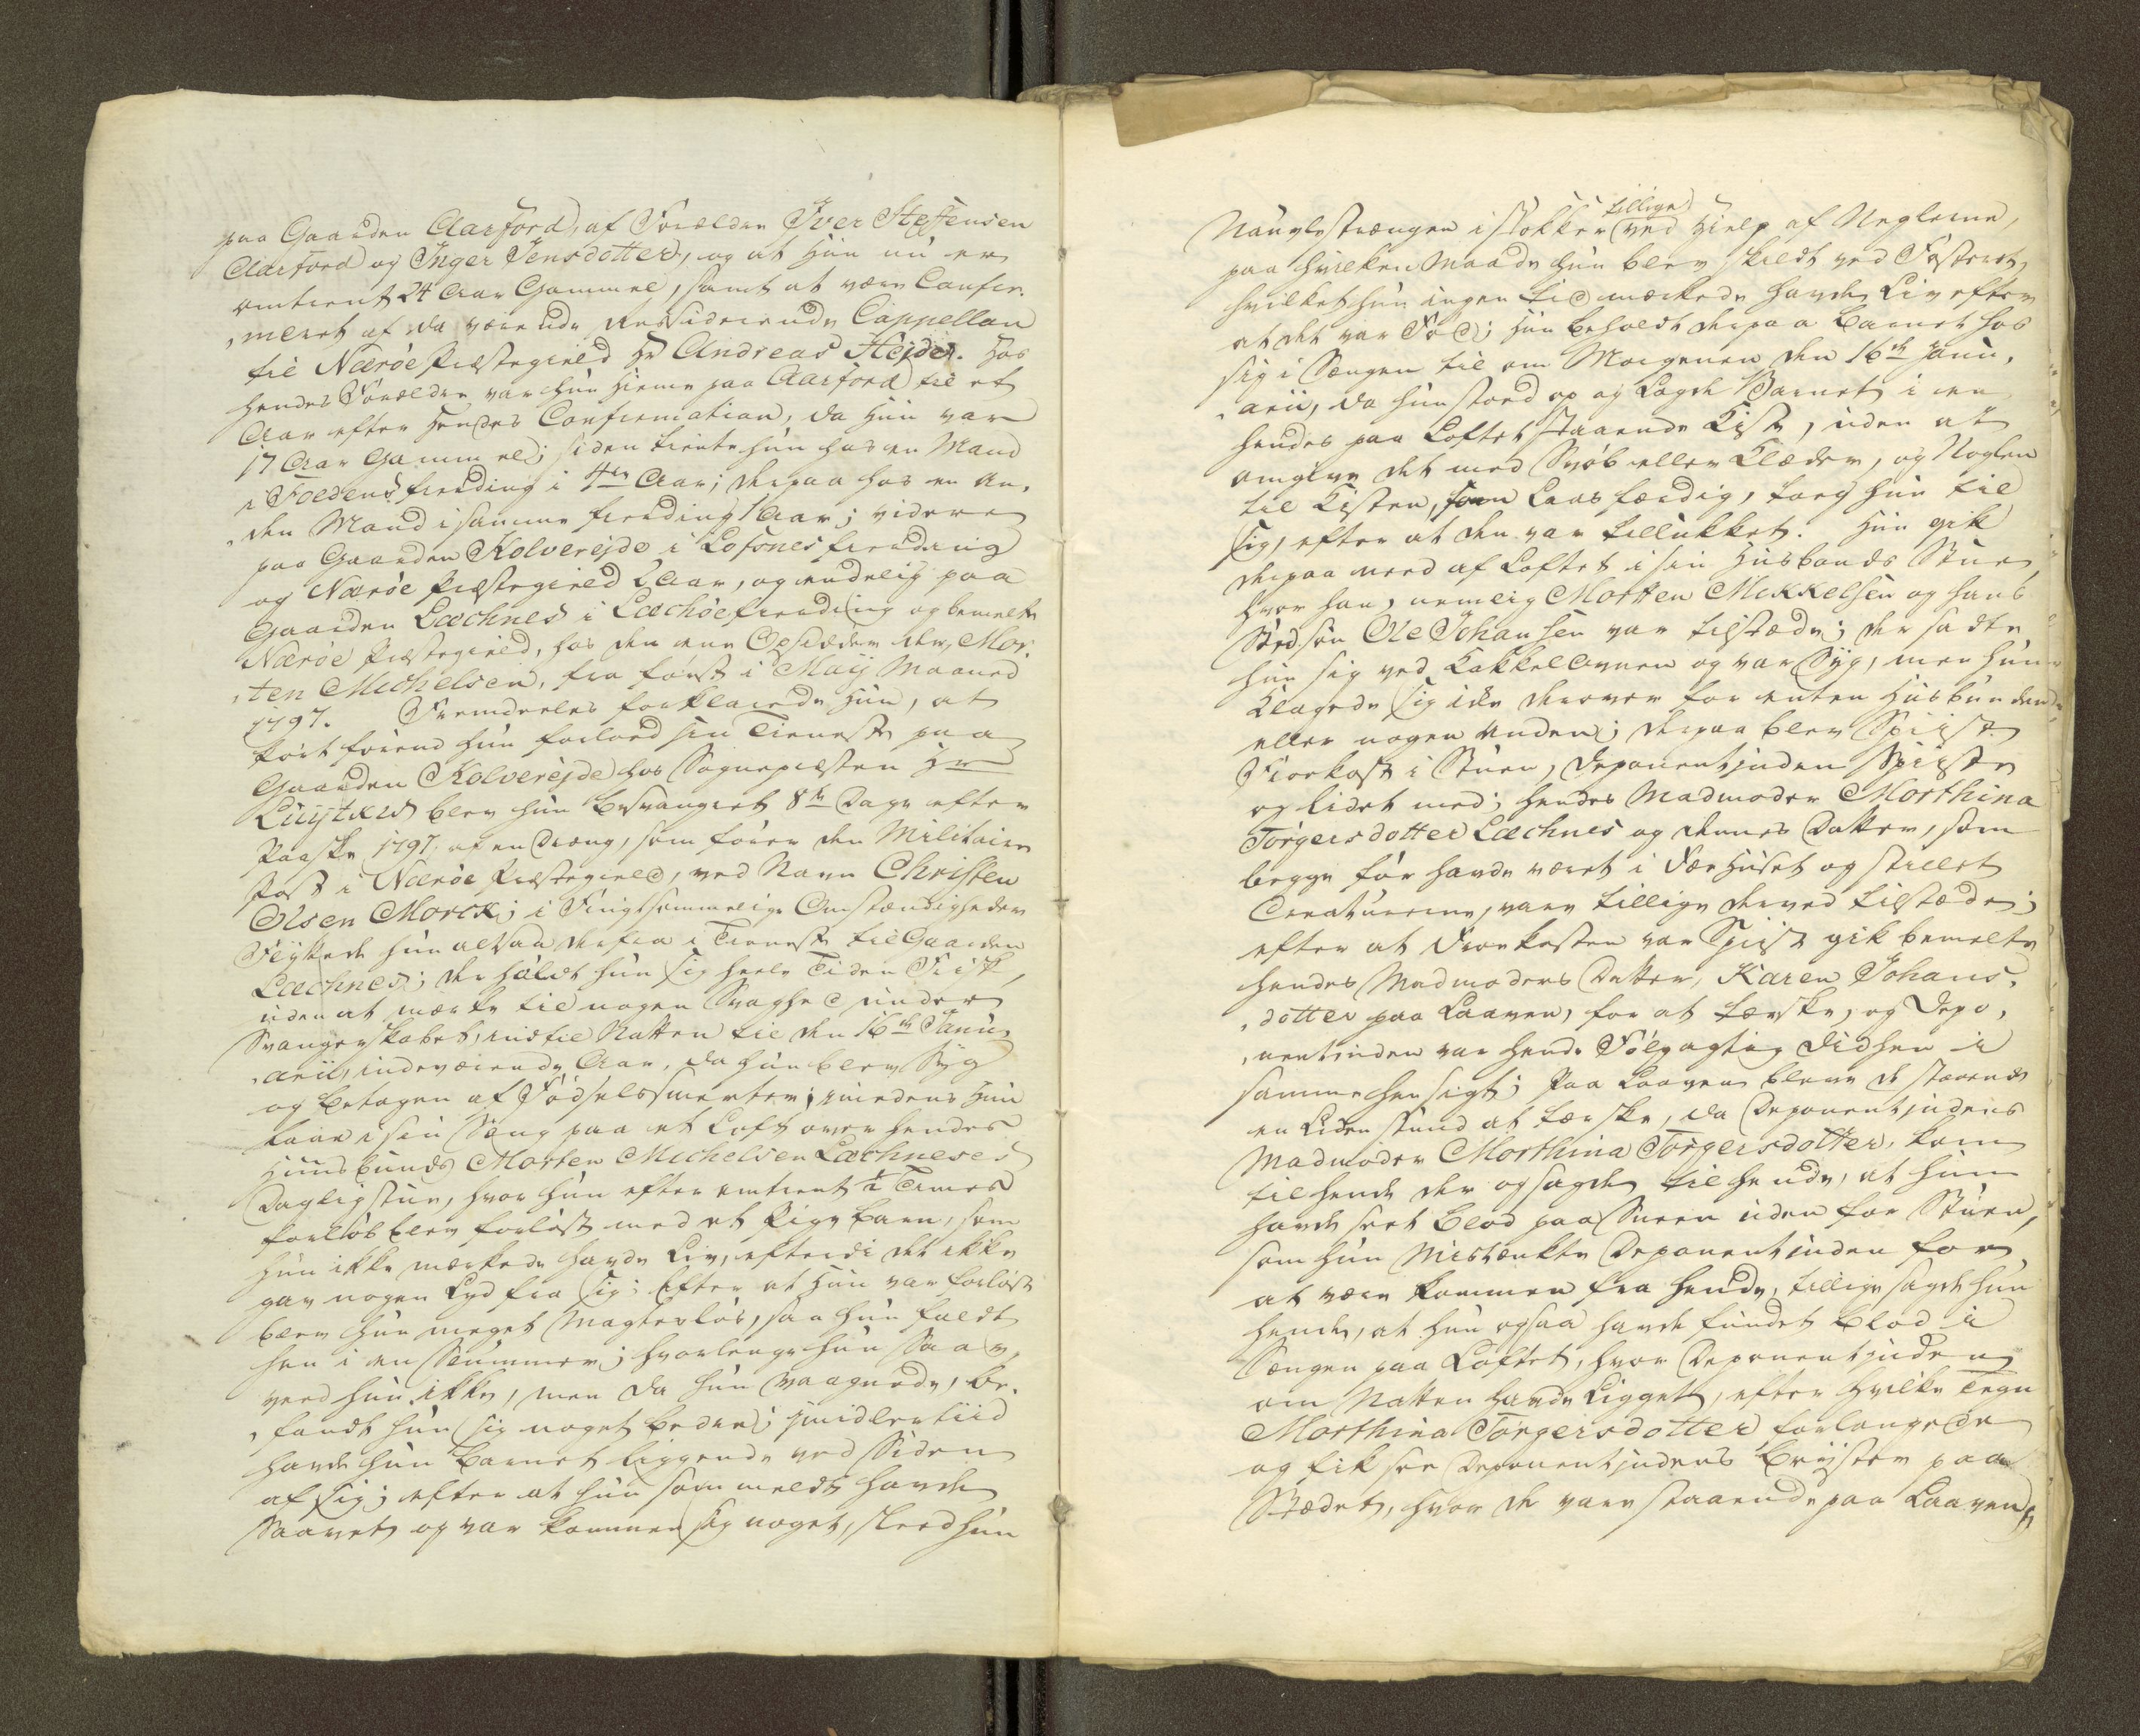 paa Gaarden Aarford, af Forældre Iver Steffensen
Aarford og Inger Jensdotter, og at hun nu er
omtrent 24 Aar Gammel, samt at være Confir-
„meret af da værende Ressiderende Cappellan
til Nærøe Præstegield Hr Andreas Hejde. Hos
hendes Forældre var hun hieme paa Aarford til et
Aar efter hendes Confirmation, da hun var
17 Aar Gammel; siden tiente hun hos en Mand
i Foldens fierding i 4re Aar; derpaa hos en an-
„den Mand i samme fierding 1 Aar; videre
paa Gaarden Kolverejde i Lofsnes fierding
og Nærøe Præstegield 2 Aar, og endelig paa
Gaarden Læchnes i Læchøe fierding og bemelte
Nærøe Præstegield, hos den ene Opsidder der, Mor-
„ten Michelsen, fra først i Maij Maaned
1797. Fremdeeles forklarede hun, at
kort førend hun forlod sin Tieneste paa
Gaarden Kolverejde hos Sognepræsten Hr
Luytkis blev hun besvangret 8te Dage efter
Paaske 1797, af en Dreng, som fører den Militaire
Post i Nærøe Præstegield, ved Navn Christen
Olsen Morck; i Frugtsommelige Omstændigheder
Flyttede hun altsaa derfra i Tieneste til Gaarden
Læchnes; der holdt hun sig heele Tiden Frisk,
uden at mærke til nogen Svaghed under
Svangerskabet, indtil Natten til den 16de Janu-
„arii, indeværende Aar, da hun blev Syg
og betagen af Fødselssmerter; imedens hun
laae i sin Seng paa et Loft over hendes
Huusbonds Morten Michelsen Lachneses
Dagligstue, hvor hun efter omtrent ½ Times
forløb blev forløst med et Pige Barn, som
hun ikke mærkede havde Liv, efterdi det ikke
gav nogen Lyd fra sig; Efter at hun var forløst
blev hun meget Magtesløs, saa hun faldt
hen i en Slummer; hvorlenge hun Saav,
veed hun ikke, men da hun vaagnede, be-
„fandt hun sig noget bedre; imidlertiid
havde hun Barnet liggende ved Siden
af sig; efter at hun som meldt havde
Saavet og var kommen sig noget, sleed hun
tillige
Naulestrængen i stökker ved Hielp af Neglerne,
paa hvilken Maade hun blev skildt ved Fosteret,
hvilket hun ingen tid mærkede havde Liv efter
at det var Fød; hun beholdt derpaa Barnet hos
sig i Sængen til om Morgenen den 16de Janu-
„arii, da hun stoed op og Lagde Barnet i en
hendes paa Loftet staaende Kiste, uden at
omgive det med Svøb eller Klæder, og Nøglen
til Kisten, som Laas færdig, tog hun til
sig, efter at den var tillukket. Hun gik
derpaa need af Loftet i sin Husbonds Stue,
hvor han, nemlig Morten Mikkelsen og hans
Stedsøn Ole Johansen var tilstæde; der sadte
hun sig ved Kakkelovnen og var Syg, men hun
Klagede sig icke derover for enten Husbonden
eller nogen anden; derpaa blev Spiist
Frokost i Stuen, Deponentinden Spiiste
og lidet med; hendes Madmoder Morthina
Törgersdotter Læchnes og dennes Datter, som
begge før havde været i Fæhuset og stillet
Creaturerne, vare tillige derved tilstæde;
efter at Frokosten var Spiist gik bemelte
hendes Madmoders Datter, Karen Johans-
„dotter paa Laaven, for at tærske, og Depo-
„nentinden var hende Følgagtig didhen i
samme hensigt; Paa Laaven bleve de staaende
en Liden stund at tærske, da Deponentindens
Madmoder Morthina Törgersdotter, kom
til hende der og sagde til hende, at hun
havde seet blod paa Sneen uden for Stuen,
som hun Mistænkte Deponentinden for
at være kommen fra hende, tillige sagde hun
hende, at hun ogsaa havde fundet blod i
Sængen paa Loftet, hvor Deponentinden
om Natten havde Ligget, efter hvilke Tegn
Morthina Törgersdotter forlangede
og fik see Deponentindens Bryster paa
Stædet, hvor de vare staaende paa Laaven,